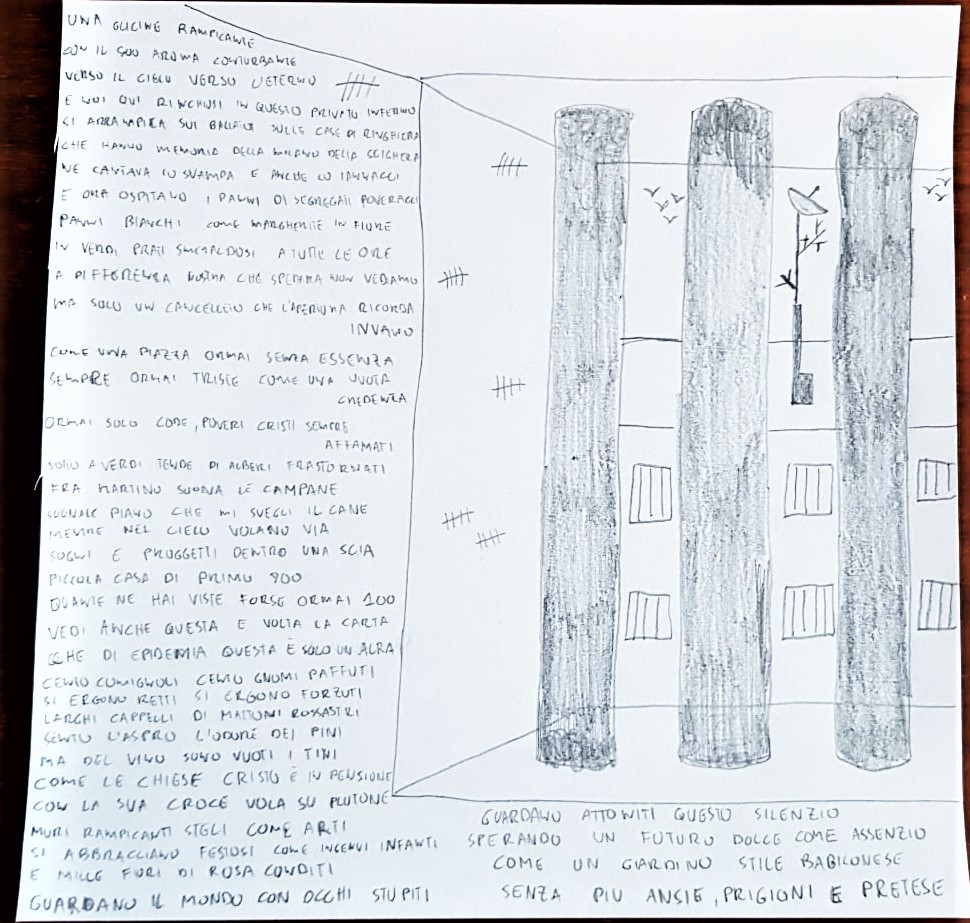 UNA GLICINE RAMPICANTE
CON IL SUO AROMA CONTURBANTE
VERSO IL CIELO VERSO L'ETERNO
E NOI QUI RINCHIUSI IN QUESTO PRIVATO INFERNO
SI ARRAMPICA SUI BALLATOI SULLE CASE DI RINGHIERA
CHE HANNO MEMORIA DELLA MILANO DELLA SCIGHERA
NE CANTAVA LO SVAMPA E ANCHE LO IANNACCI
E ORA OSPITANO I PANNI DI SEGREGATI POVERACCI
PANNI BIANCHI COME MARGHERITE IN FIORE
IN VERDI PRATI SMERALDOSI A TUTTE LE ORE
A DIFFERENZA NOSTRA CHE SPERANZA NON VEDIAMO
MA SOLO UN CANCELLETTO CHE L'APERTURA RICORDA
INVANO
COME UNA PIAZZA ORMAI SENZA ESSENZA
SEMPRE ORMAI TRISTE COME UNA VUOTA
CREDENZA
ORMAI SOLO CODE, POVERI CRISTI SEMPRE
AFFAMATI
SOTTO A VERDI TENDE DI ALBERI FRASTORNATI
FRA MARTINO SUONA LE CAMPANE
SUONALE PIANO CHE MI SVEGLI IL CANE
MENTRE NEL CIELO VOLANO VIA
SOGNI E PROGGETTI DENTRO UNA SCIA
PICCOLA CASA DI PRIMO 900
QUANTE NE HAI VISTE FORSE ORMAI 100
VEDI ANCHE QUESTA E VOLTA LA CARTA
CHE DI EPIDEMIA QUESTA È SOLO UN ALTRA
CENTO COMIGNOLI CENTO GNOMI PAFFUTI
SI ERGONO RETTI SI ERGONO FORZUTI
LARGHI CAPPELLI DI MATTONI ROSSASTRI
SENTO L'ASPRO L'ODORE DEI PINI
MA DEL VINO SONO VUOTI I TINI
COME LE CHIESE CRISTO È IN PENSIONE
CON LA SUA CROCE VOLA SU PLUTONE
MURI RAMPICANTI STELI COME ARTI
SI ABBRACCIANO FESTOSI COME INGENUI INFANTI
E MILLE FIORI DI ROSA CONDITI
GUARDANO IL MONDO CON OCCHI STUPITI
GUARDANO ATTONITI QUESTO SILENZIO
SPERANDO UN FUTURO DOLCE COME ASSENZIO
COME UN GIARDINO STILE BABILONESE
SENZA PIU ANSIE, PRIGIONI E PRETESE